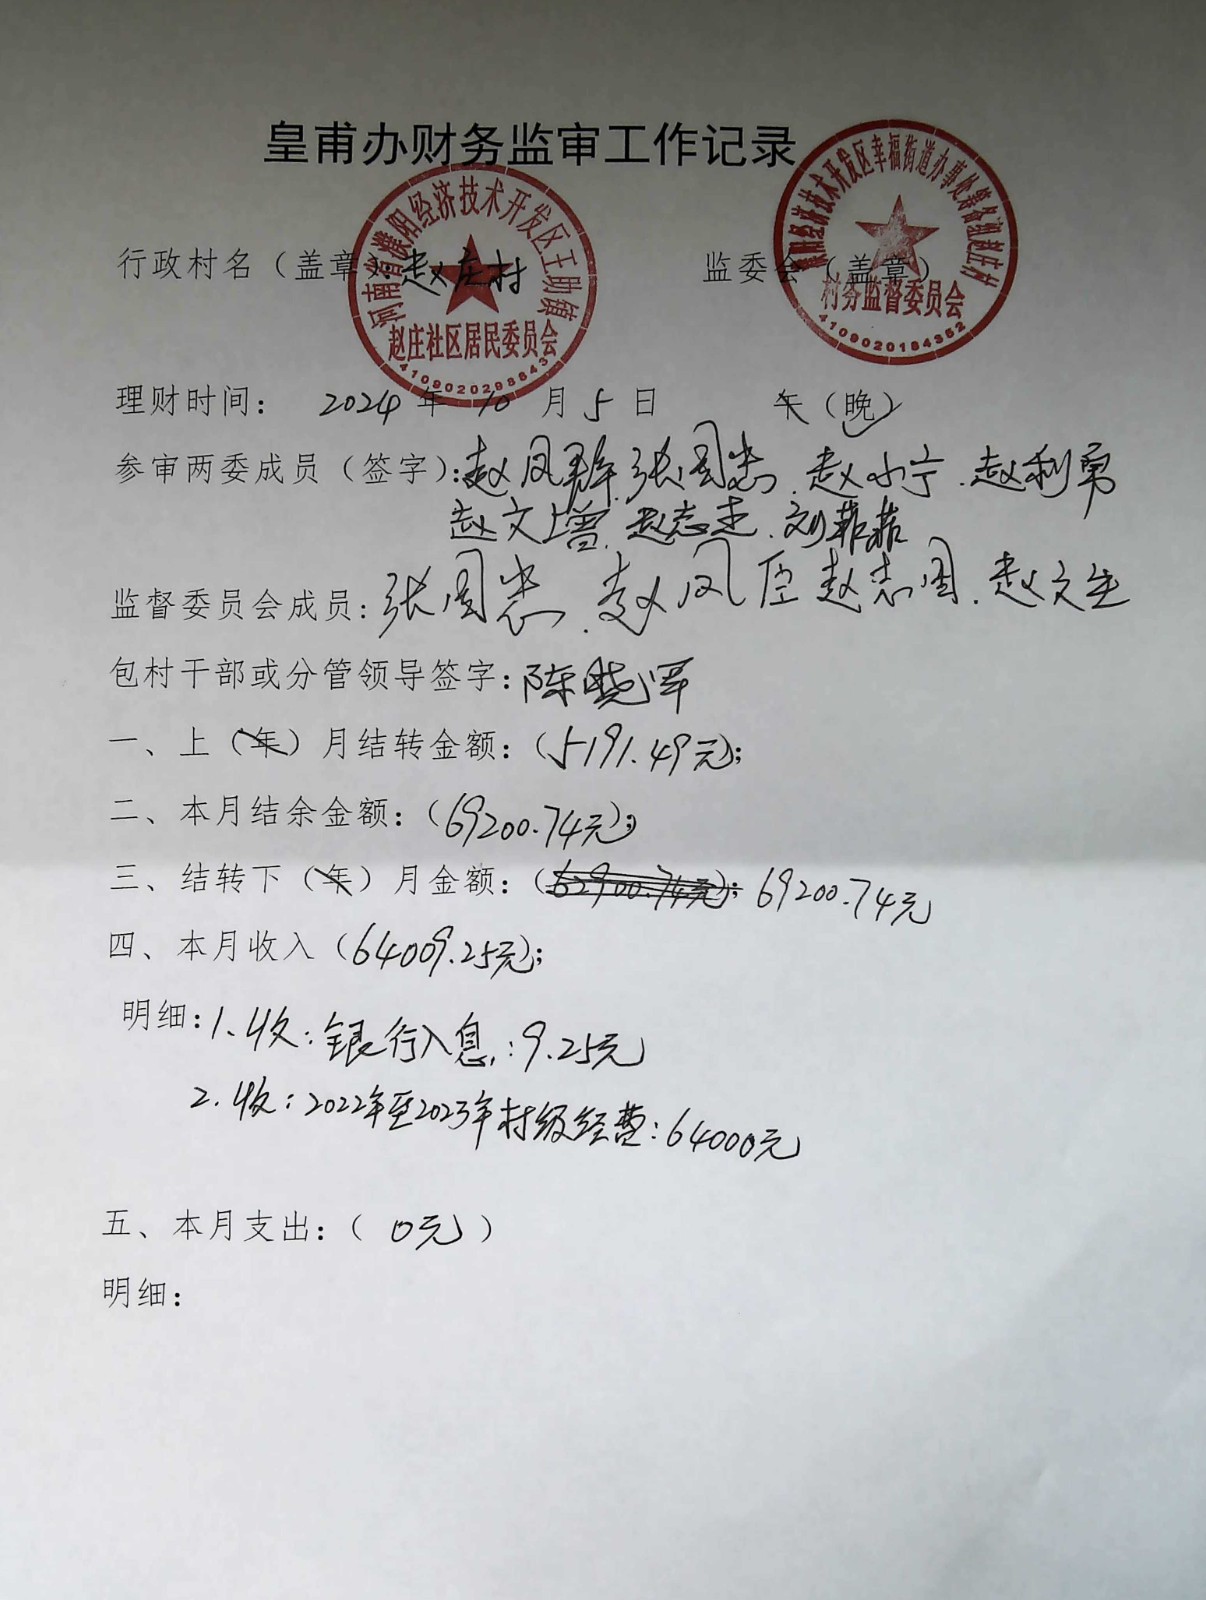 皇甫办财务监审工作记录
行政村名（盖章）：赵庄村 监委会（盖章）
河南省濮阳经济技术开发区王助镇
赵庄社区居民委员会
村务监督委员会
4109020184352
理财时间： 2024年10月5日 午（晚）
参审两委成员（签字）：赵凤 张国忠、赵小宁、赵利勇
赵文增、赵志走、刘菲菲
监督委员会成员：张国忠、赵凤臣 赵志国、赵文生
包村干部或分管领导签字：陈晓军
一、上（年）月结转金额：（5191.49元）；
二、本月结余金额：（69200.74元）；
三、结转下（年）月金额：（62900.74元）；69200.74元
四、本月收入（64009.25元）；
明细：1、收：银行入息：9.25元
2.收：2022年至2023年村级经费：64000元
五、本月支出：（ 0元 ）
明细：